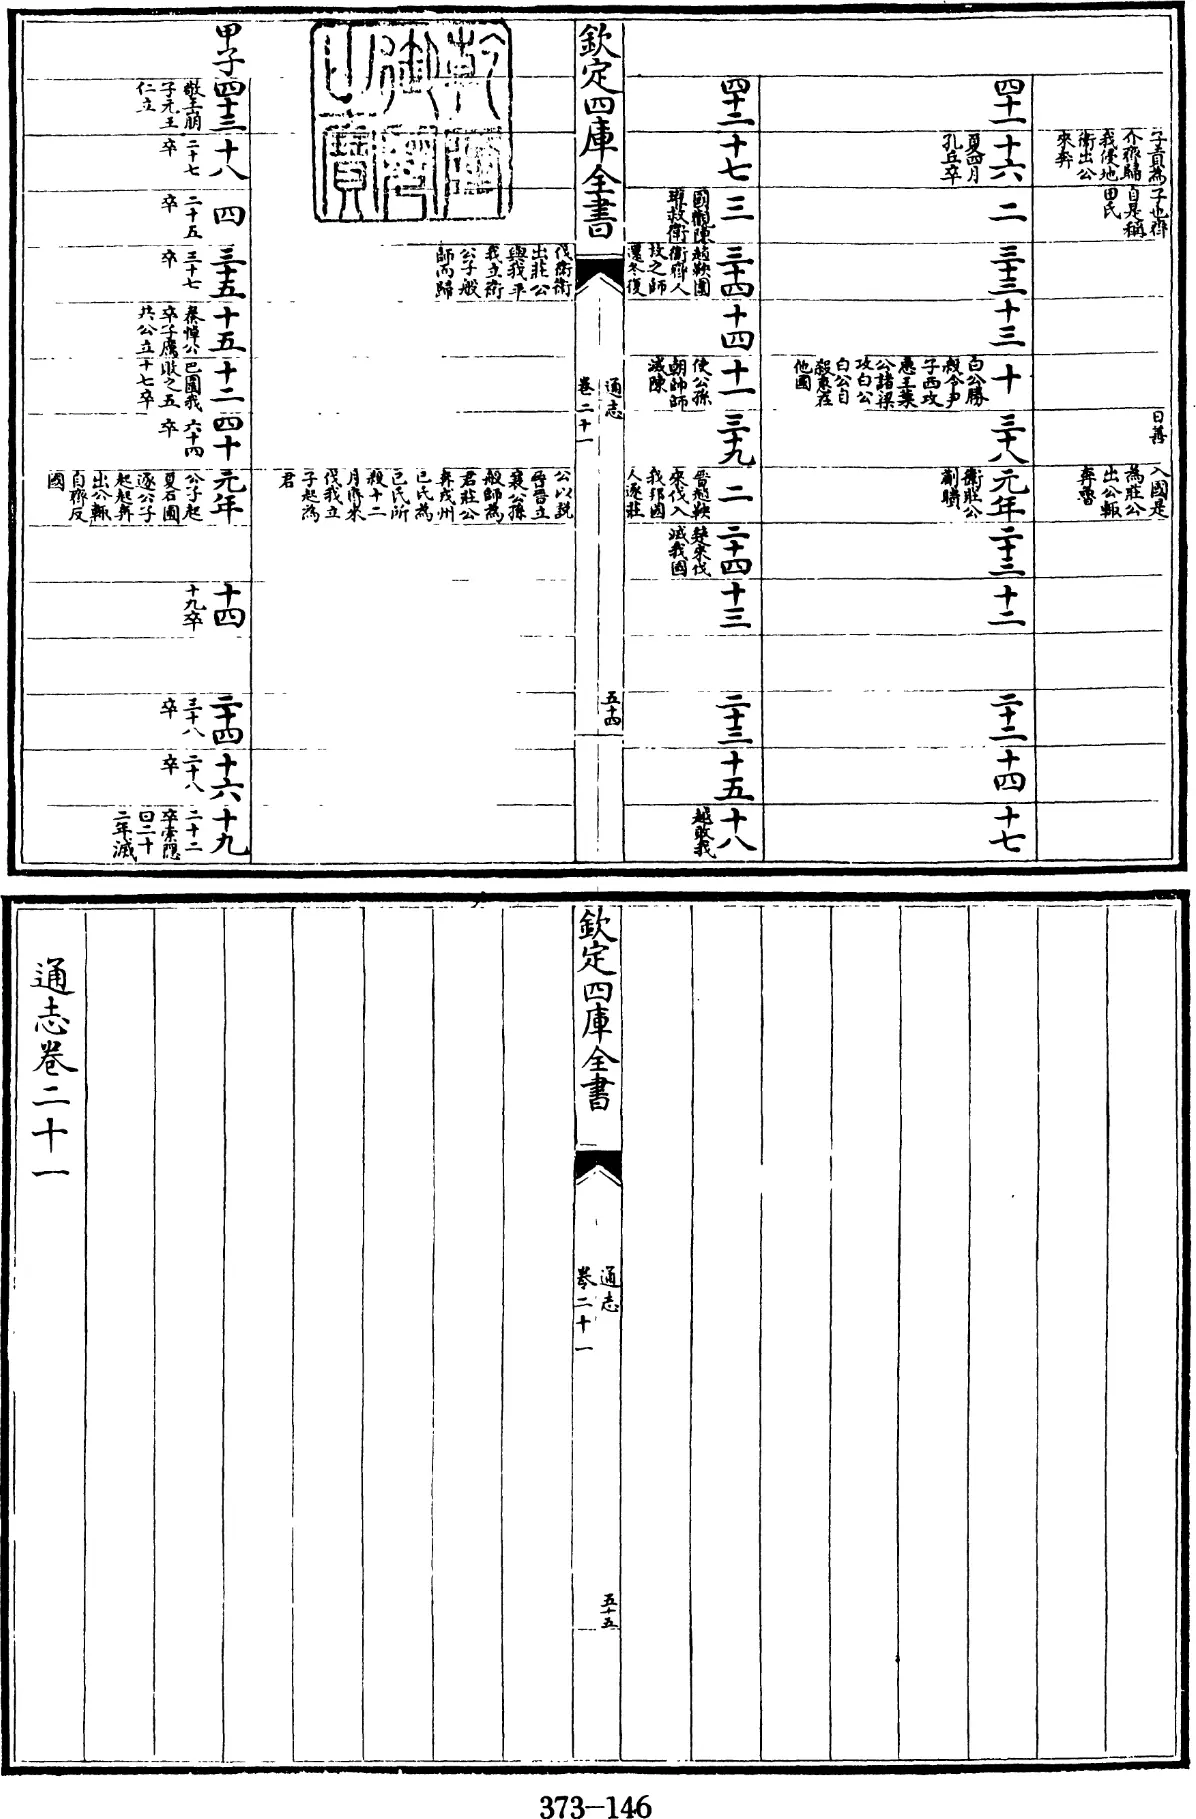 子貢為
介齊歸
我侵地
衛出公
來奔
子也齊
自是稱
田氏
日善
入國是
為莊公
出公輒
奔魯
四十一
十六
夏四月
孔丘卒
二
三十三
十三
十
白公勝
殺令尹
子西攻
惠王葉
公諸梁
攻白公
白公自
殺惠在
他國
三十八
元年
衛莊公
蒯聵
二十三
十二
二十二
十四
十七
四十二
十七
三
國觀陳
瓘救衛
三十四
趙鞅圍
衛齊人
救之師
還冬復
十四
十一
使公孫
朝帥師
滅陳
三十九
二
晉趙鞅
來伐入
我郛國
人逐莊
二十四
楚來伐
滅我國
十三
二十三
十五
十八
越敗我
欽定四庫全書
通志
卷二十一
五十四
伐衛衛
出莊公
與我平
我立衛
公子般
師而歸
公以説
晉晉立
襄公孫
般師為
君莊公
奔戎州
己氏為
己氏所
殺十二
月齊來
伐我立
子起為
君
乾隆御覽之寶
甲子
四十三
敬王崩
子元王
仁立
十八
二十七
卒
四
二十五
卒
三十五
三十七
卒
十五
秦悼公
卒子厲
共公立
十二
巴圍我
敗之五
十七卒
四十
六十四
卒
元年
公子起
夏石圃
逐公子
起起奔
出公輒
自齊反
國
十四
十九卒
二十四
三十八
卒
十六
二十八
卒
十九
二十二
卒索隱
曰二十
二年滅
欽定四庫全書
通志
卷二十一
五十五
通志卷二十一
373-146